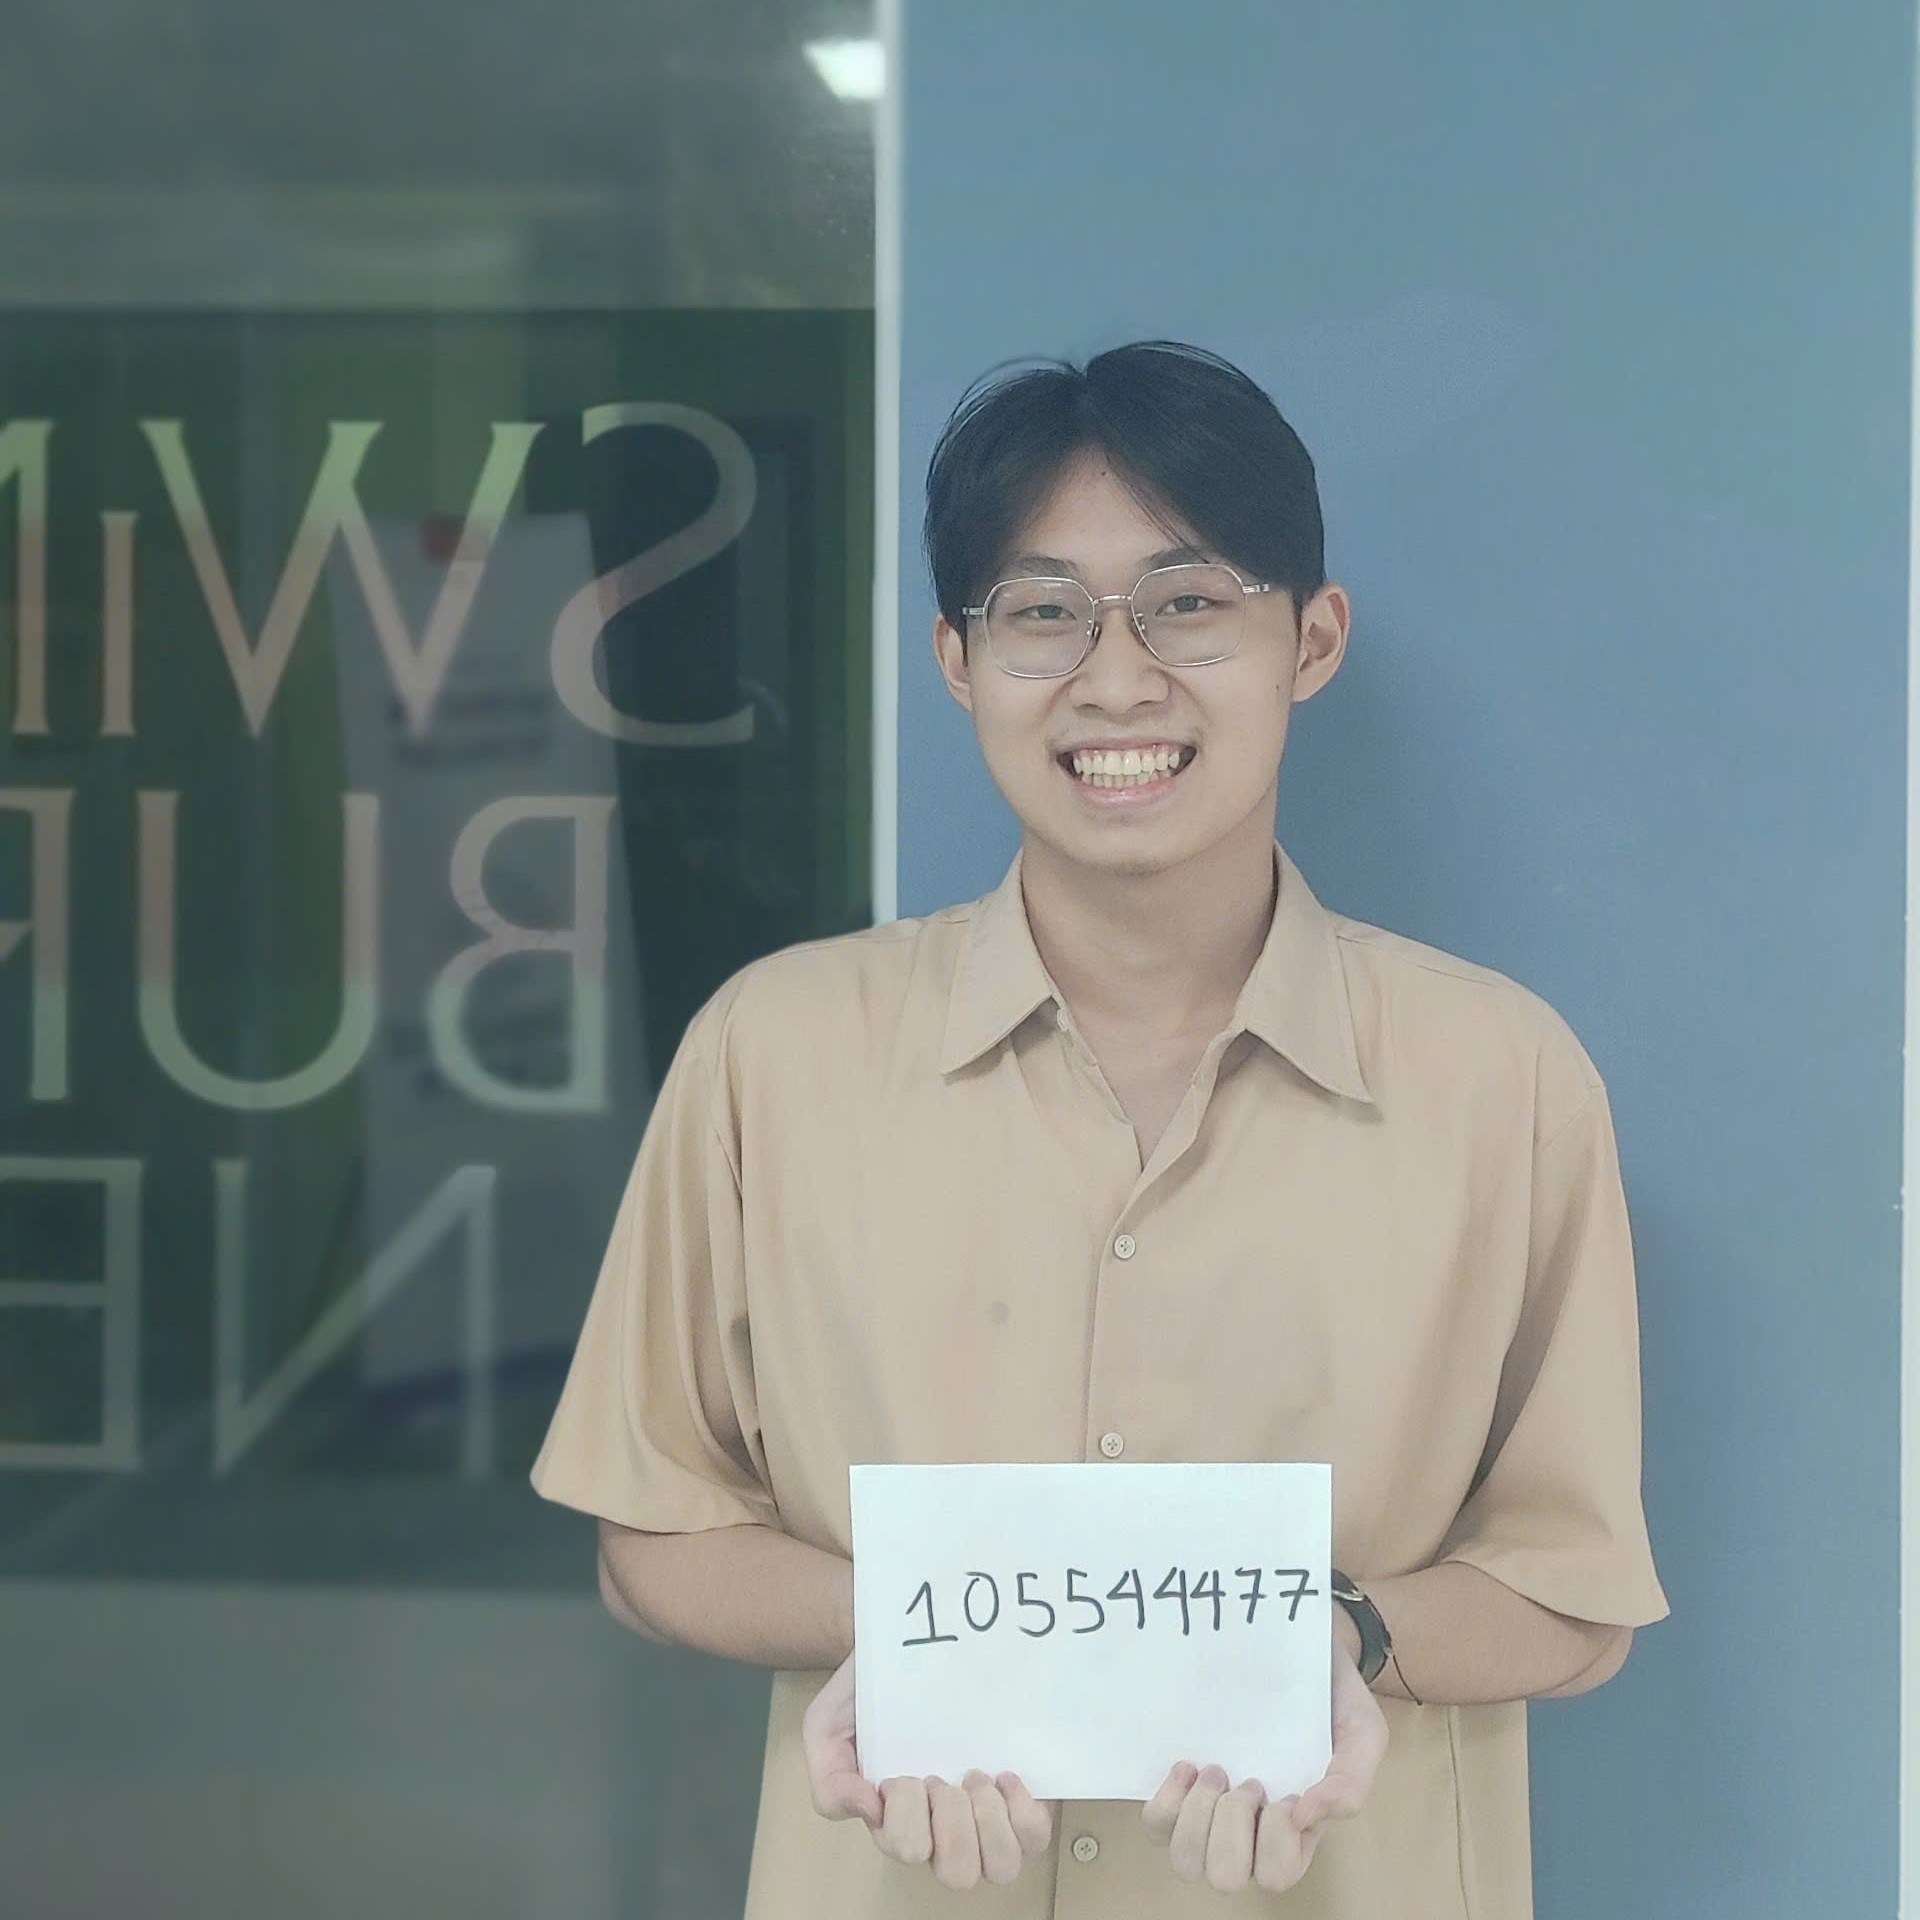 SWiN
BUR
NE
105544477